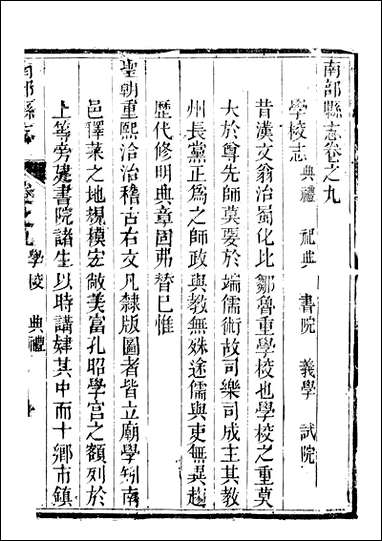 南部縣志卷之九
學校志 典禮 祀典 書院 義學 試院
昔漢文翁治蜀化比鄒魯重學校也學校之重莫
大於尊先師莫要於端儒術故司樂司成主其教
州長黨正為之師政與教無殊途儒與吏無異趨
歷代修明典章固弗替已惟
聖朝重熙洽治稽古右文凡隸版圖者皆立廟學矧南
邑釋菜之地規模宏敞美富孔昭學宮之額列於
上等旁建書院諸生以時講肄其中而十鄉市鎮
南部縣志
卷之九 學校 典禮